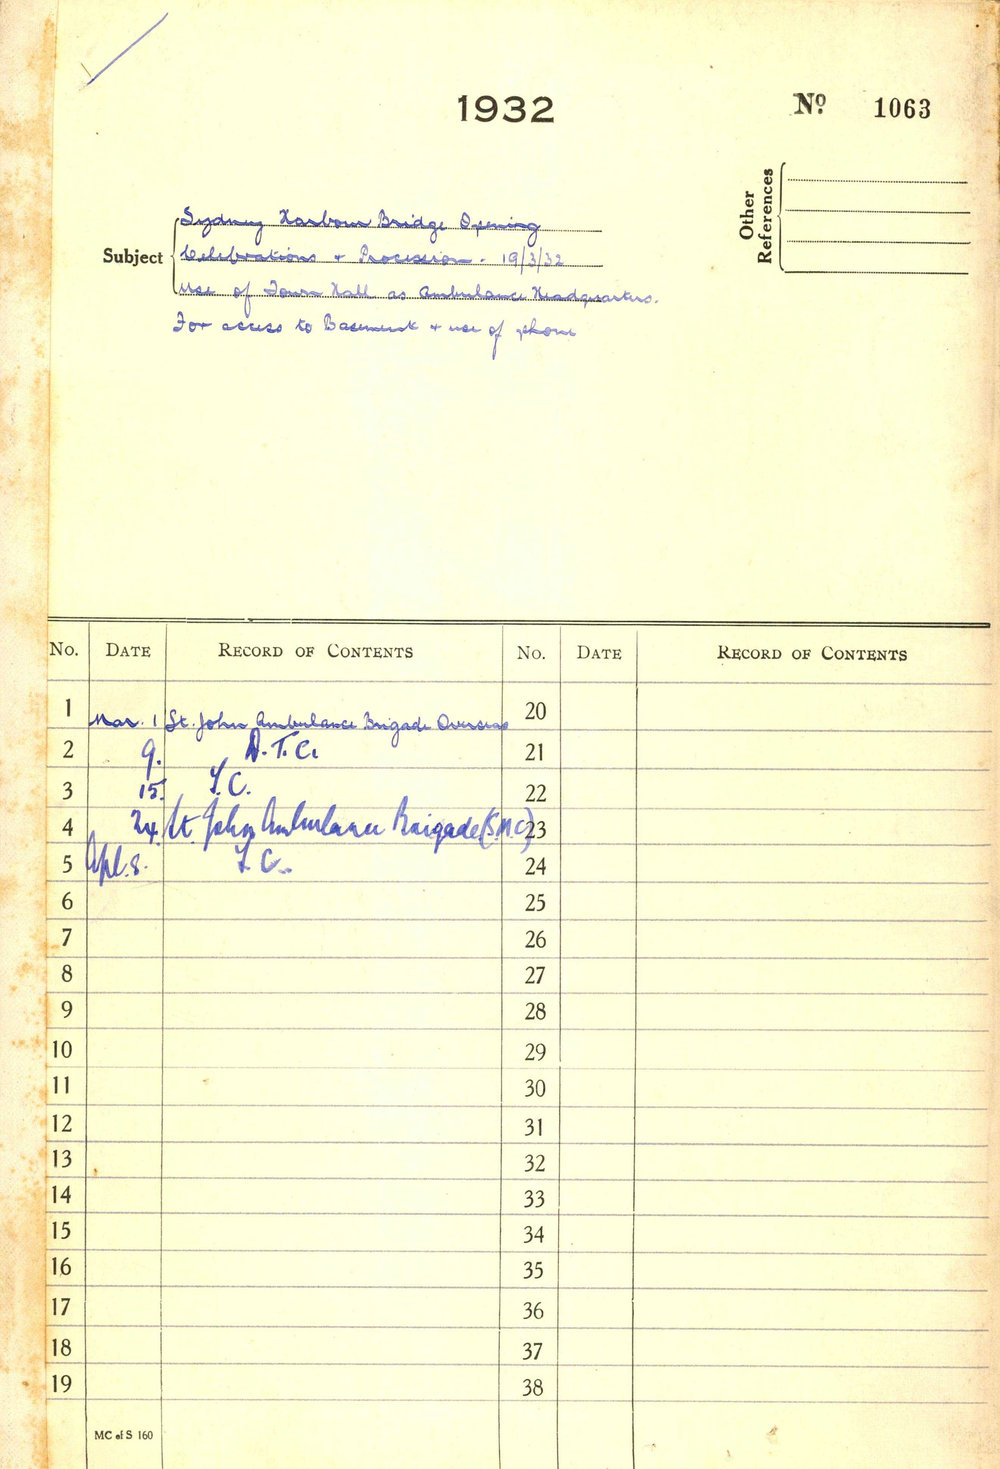 1932
Nº 1063
Other
References
Subject
Sydney Harbour Bridge Opening
Celebrations + Procession - 19/3/32
Use of Town Hall as Ambulance Headquarters.
For access to Basement + use of phone
No. DATE RECORD OF CONTENTS No. DATE RECORD OF CONTENTS
1 Mar. 1 St. John Ambulance Brigade Overseas 20
2 9. D.T.C. 21
3 15. T.C. 22
4 24. St. John Ambulance Brigade (S.M.C) 23
5 Apl. 8. T.C. 24
6 25
7 26
8 27
9 28
10 29
11 30
12 31
13 32
14 33
15 34
16 35
17 36
18 37
19 38
MC of S 160